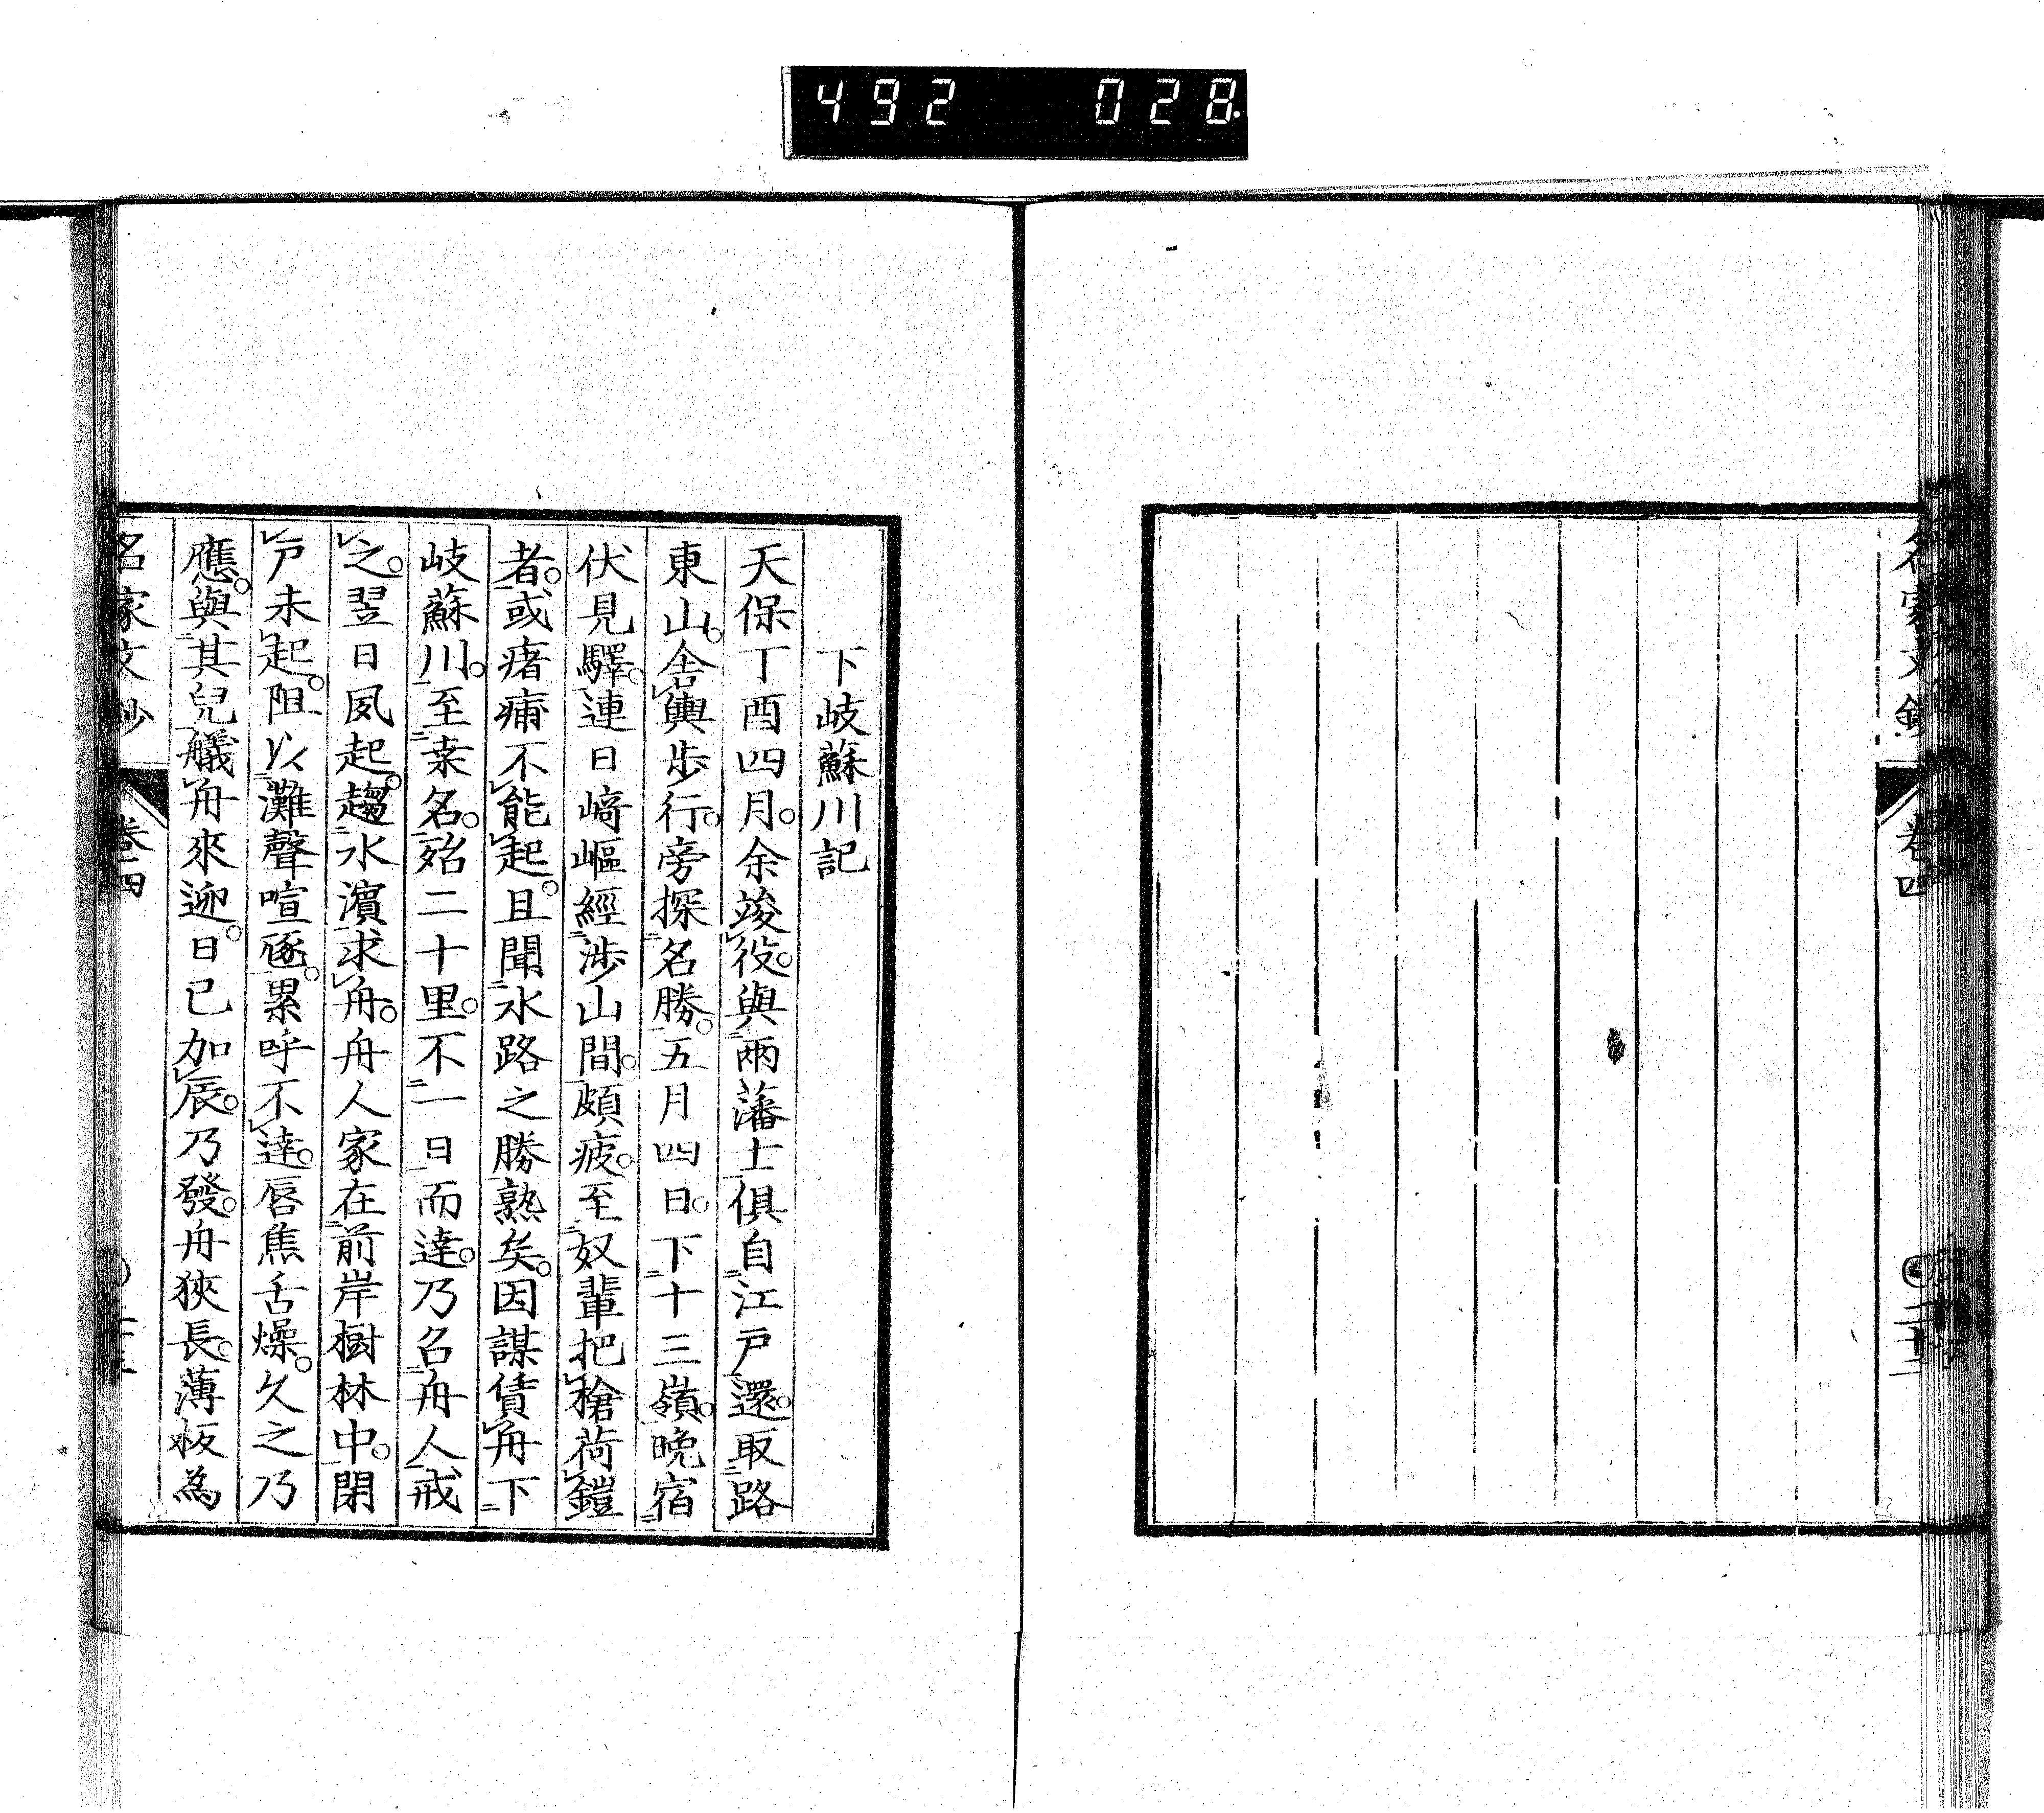 492 028
名家文鈔 卷四
下岐蘇川記
天保丁酉四月。余竣役。與兩藩士俱自江戸還。取路
東山。舍輿歩行。旁探名勝。五月四日。下十三嶺。晩宿
伏見驛。連日﨑嶇經渉山間。頗疲。至奴輩把槍荷鎧
者。或瘏痡不能起。且聞水路之勝熟矣。因謀賃舟下
岐蘇川。至桒名。殆二十里。不一日而達。乃召舟人戒
之。翌日夙起。趨水濵求舟。舟人家在前岸樹林中。閉
戸未起。阻以灘聲喧豗。累呼不達。唇焦舌燥。久之乃
應。與其兒艤舟來迎。日已加辰。乃發。舟狹長。薄板為
名家文鈔 卷四